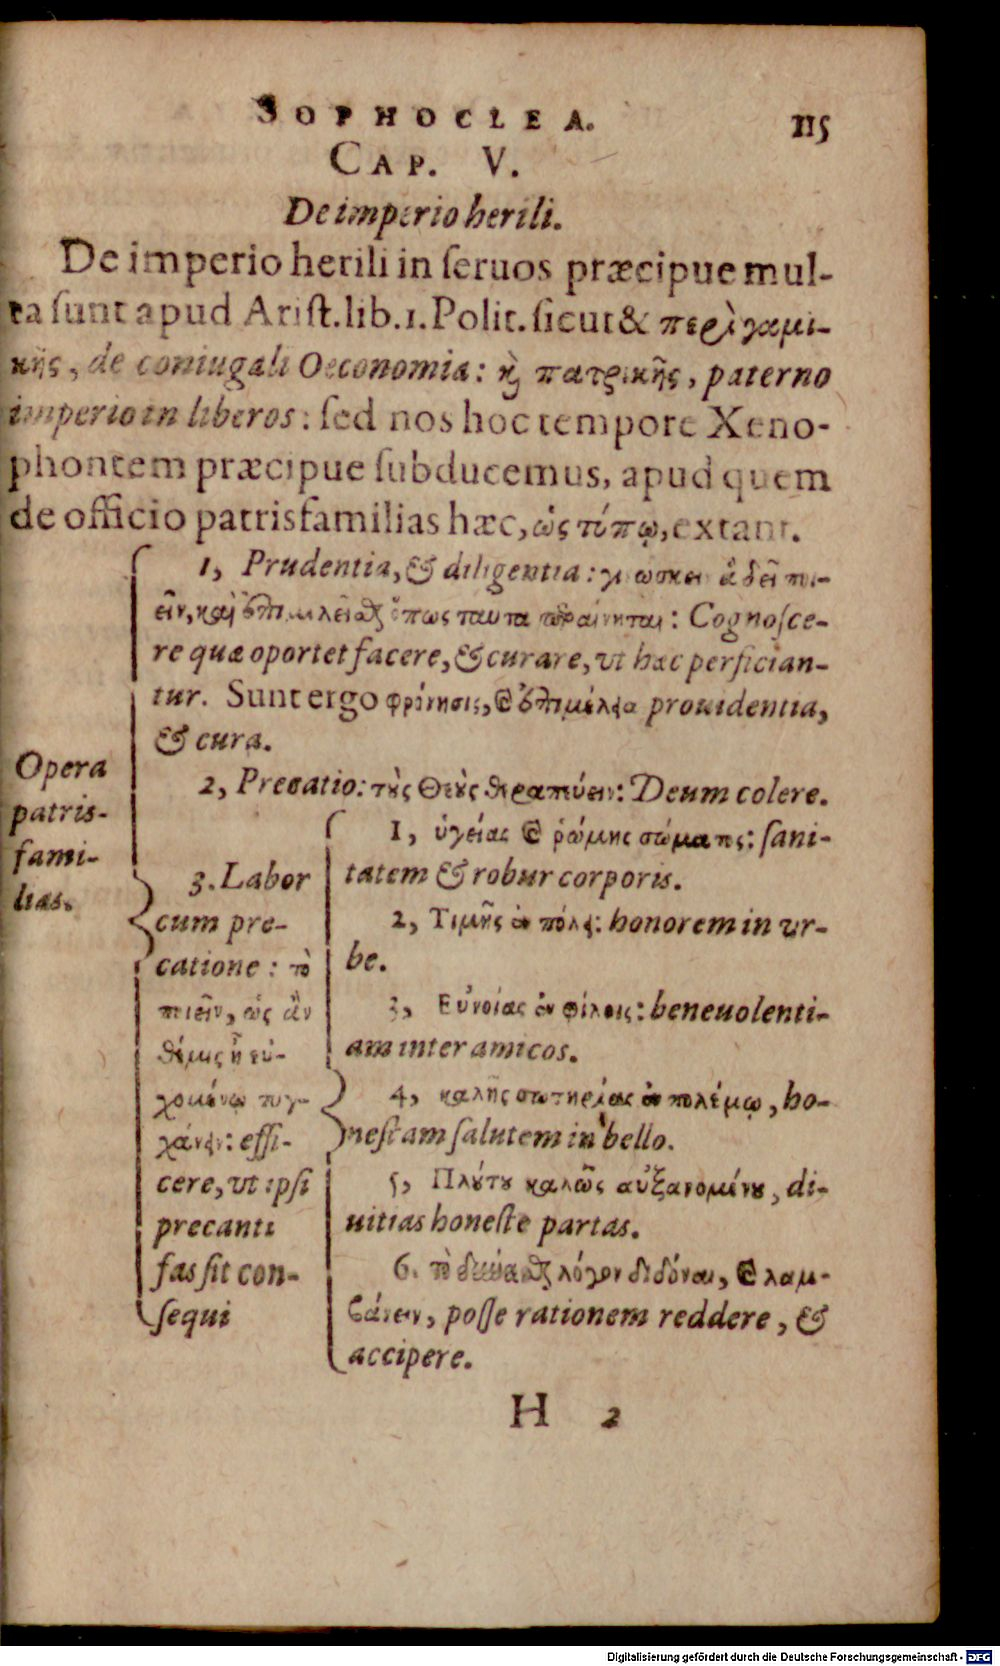 SOPHOCLEA. 115
CAP. V.
De imperio herili.
De imperio herili in ſeruos præcipue mul-
ta ſunt apud Ariſt. lib. 1. Polit. ſicut & περὶ γαμι-
κῆς, de coniugali Oeconomia: ϗ̀ πατρικῆς, paterno
imperio in liberos: ſed nos hoc tempore Xeno-
phontem præcipue ſubducemus, apud quem
de officio patrisfamilias hæc, ὡς τύπῳ, extant.
1, Prudentia, & diligentia: γινώσκειν ἃ δεῖ ποι-
εῖν, καὶ ἐπιμελεῖσθαι ὅπως ταῦτα περαίνηται: Cognoſce-
re quæ oportet facere, & curare, vt hæc perfician-
tur. Sunt ergo φρόνησις, & ἐπιμέλεια prouidentia,
& cura.
Opera
patris-
fami-
lias.
2, Precatio: τοὺς Θεοὺς θεραπεύειν: Deum colere.
3. Labor
cum pre-
catione: τὸ
ποιεῖν, ὡς ἂν
θέμις ᾖ εὐ-
χομένῳ τυγ-
χάνειν: effi-
cere, vt ipſi
precanti
fas ſit con-
ſequi
1, ὑγείας & ῥώμης σώματος: ſani-
tatem & robur corporis.
2, Τιμῆς ἐν πόλει: honorem in vr-
be.
3, Εὐνοίας ἐν φίλοις: beneuolenti-
am inter amicos.
4, καλῆς σωτηρίας ἐν πολέμῳ, ho-
neſtam ſalutem in bello.
5, Πλούτου καλῶς αὐξανομένου, di-
uitias honeſte partas.
6. τὸ δύνασθαι λόγον διδόναι, & λαμ-
βάνειν, poſſe rationem reddere, &
accipere.
H 2
Digitalisierung gefördert durch die Deutsche Forschungsgemeinschaft - DFG